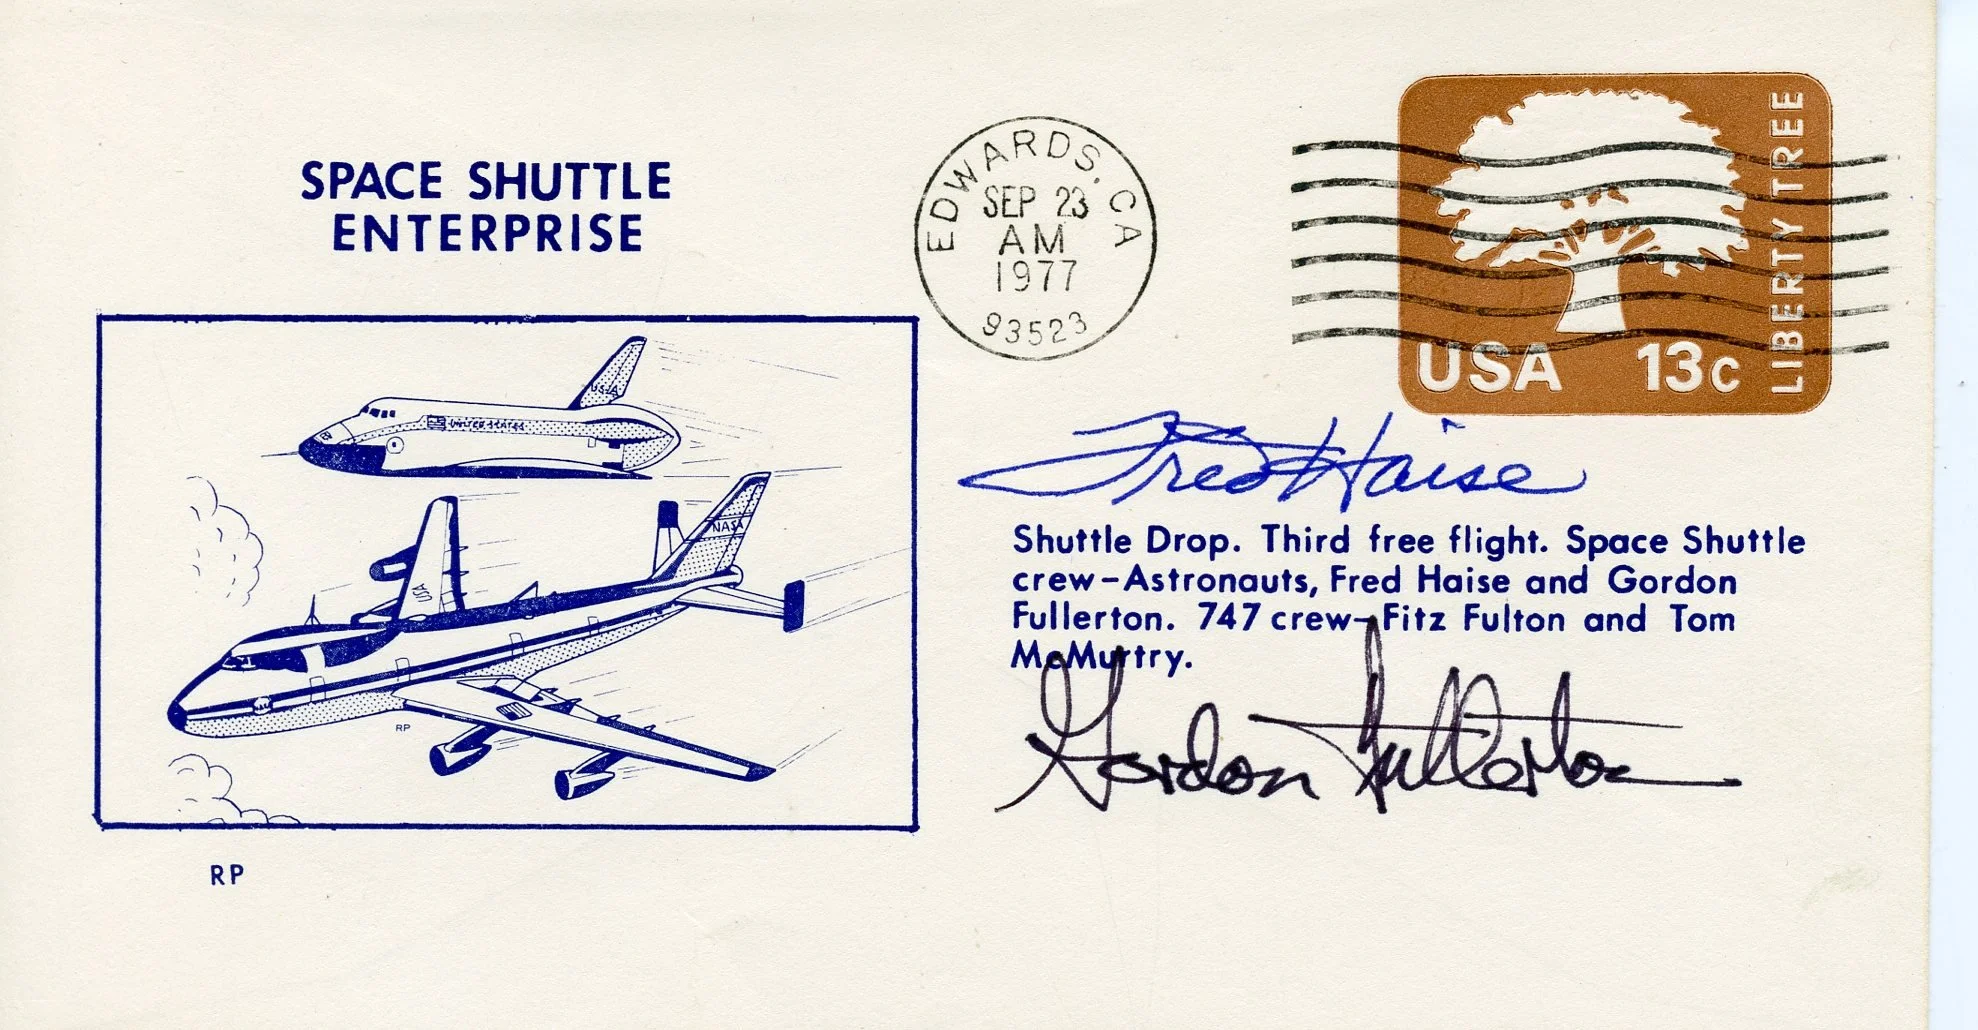 SPACE SHUTTLE
ENTERPRISE
EDWARDS, CA
SEP 23
AM
1977
93523
LIBERTY TREE
USA 13c
USA
UNITED STATES
NASA
USA
RP
RP
Fred Haise
Shuttle Drop. Third free flight. Space Shuttle
crew-Astronauts, Fred Haise and Gordon
Fullerton. 747 crew-Fitz Fulton and Tom
McMurtry.
Gordon Fullerton